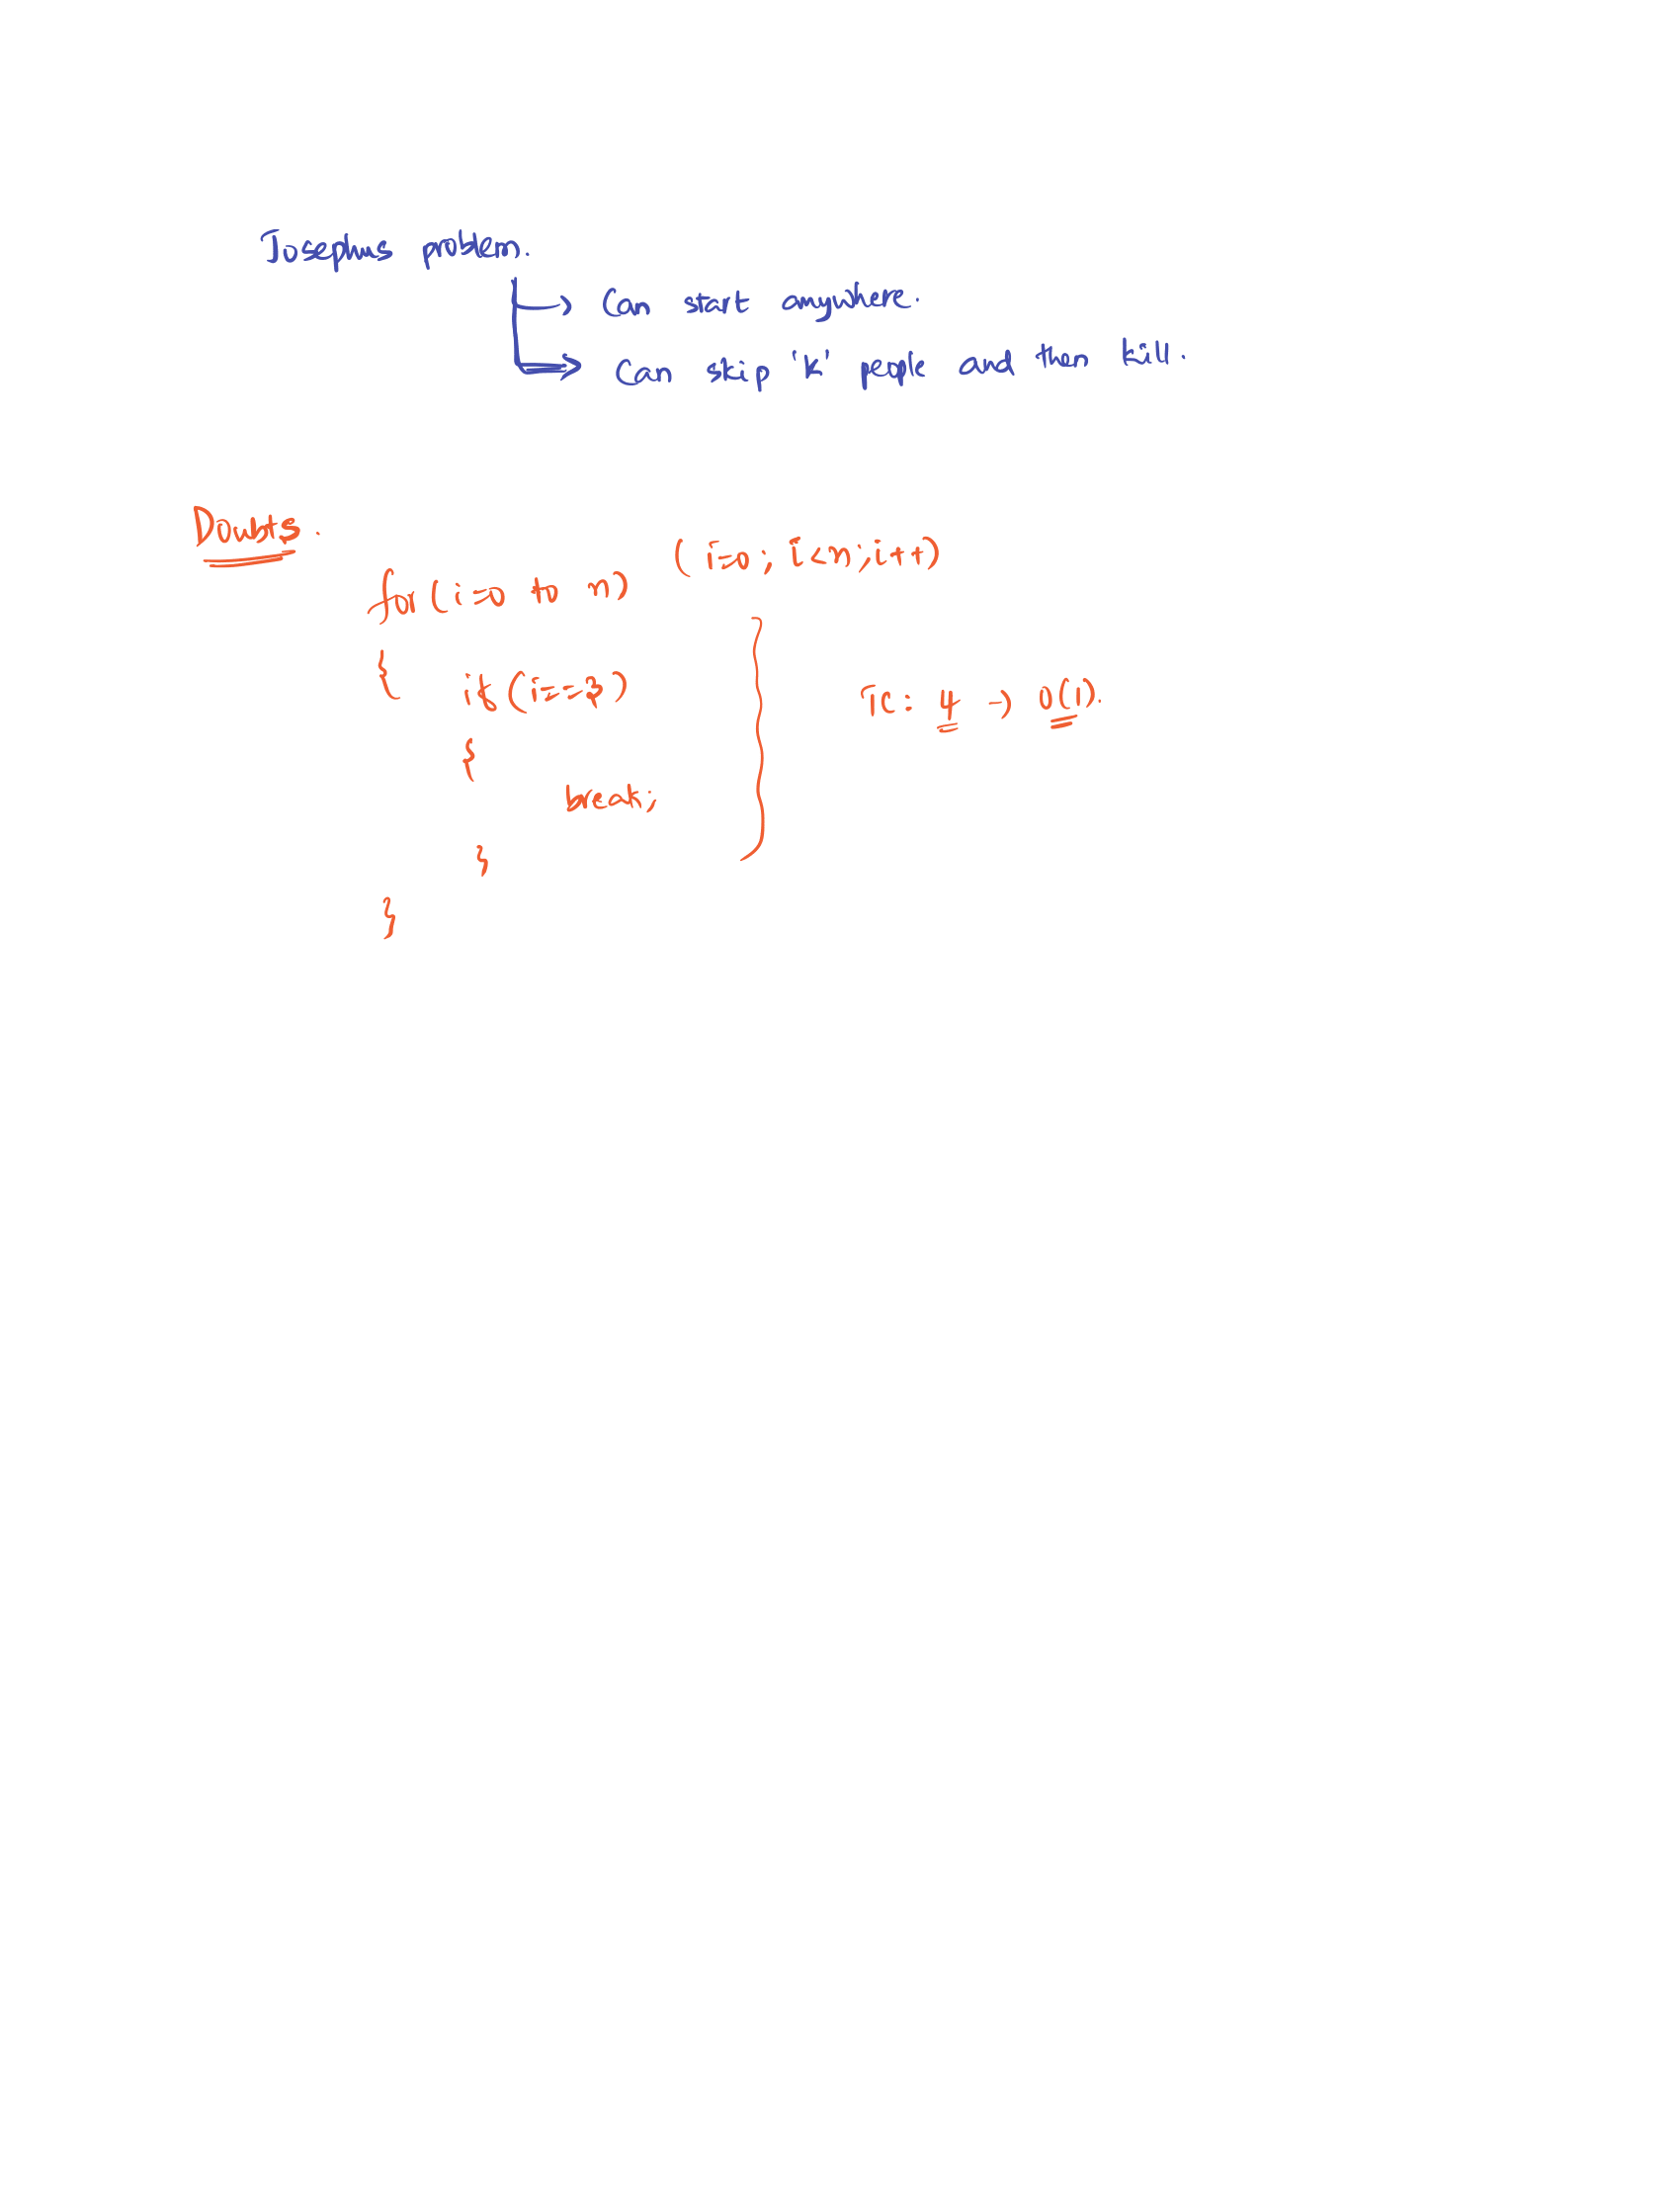 Josephus problem.
Can start anywhere.
Can skip 'K' people and then kill.
Doubts.
for(i=0 to n) (i=0; i<n; i++)
{
if(i==3)
{
break;
}
}
TC: 4 → O(1).